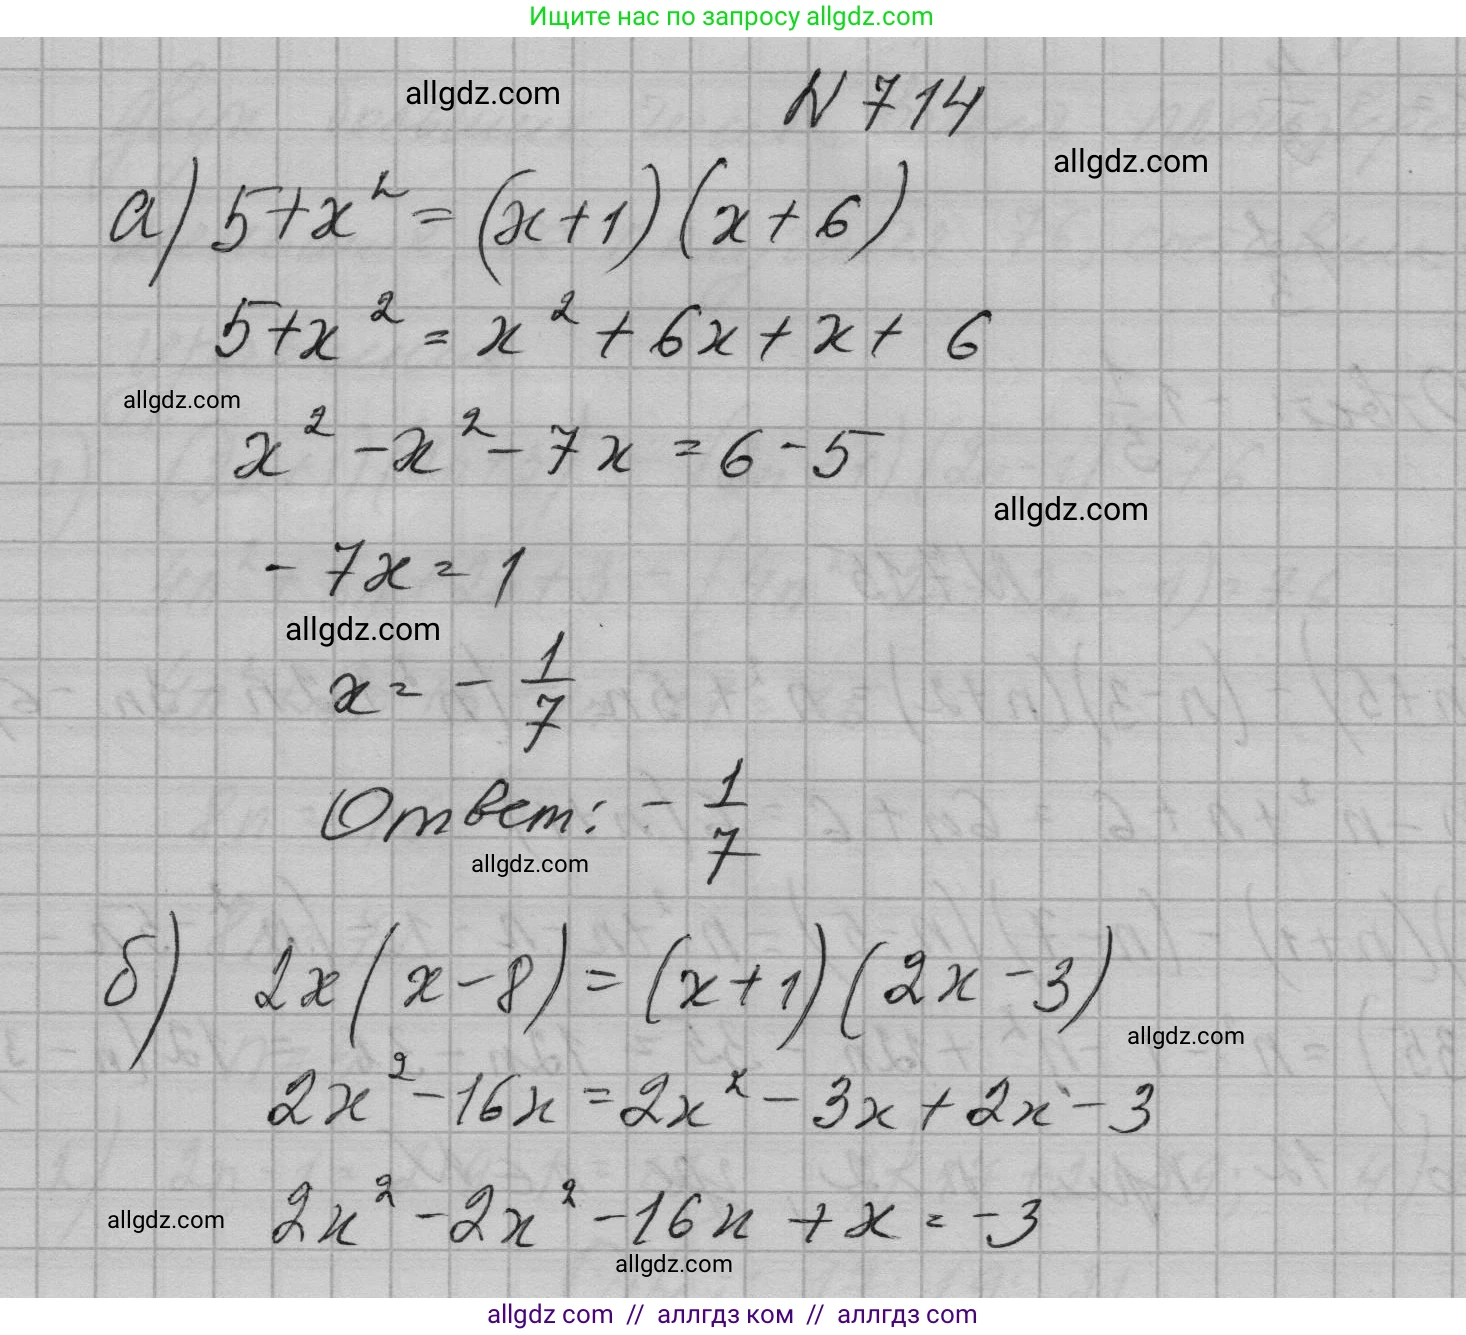 Ищите нас по запросу allgdz.com
allgdz.com
N 714
allgdz.com
а) 5+x² = (x+1)(x+6)
5+x² = x² + 6x + x + 6
allgdz.com
x² - x² - 7x = 6 - 5
allgdz.com
- 7x = 1
allgdz.com
x = - 1/7
Ответ: - 1/7
allgdz.com
б) 2x(x-8) = (x+1)(2x-3)
allgdz.com
2x² - 16x = 2x² - 3x + 2x - 3
2x² - 2x² - 16x + x = -3
allgdz.com
allgdz.com
allgdz com // аллгдз ком // аллгдз com